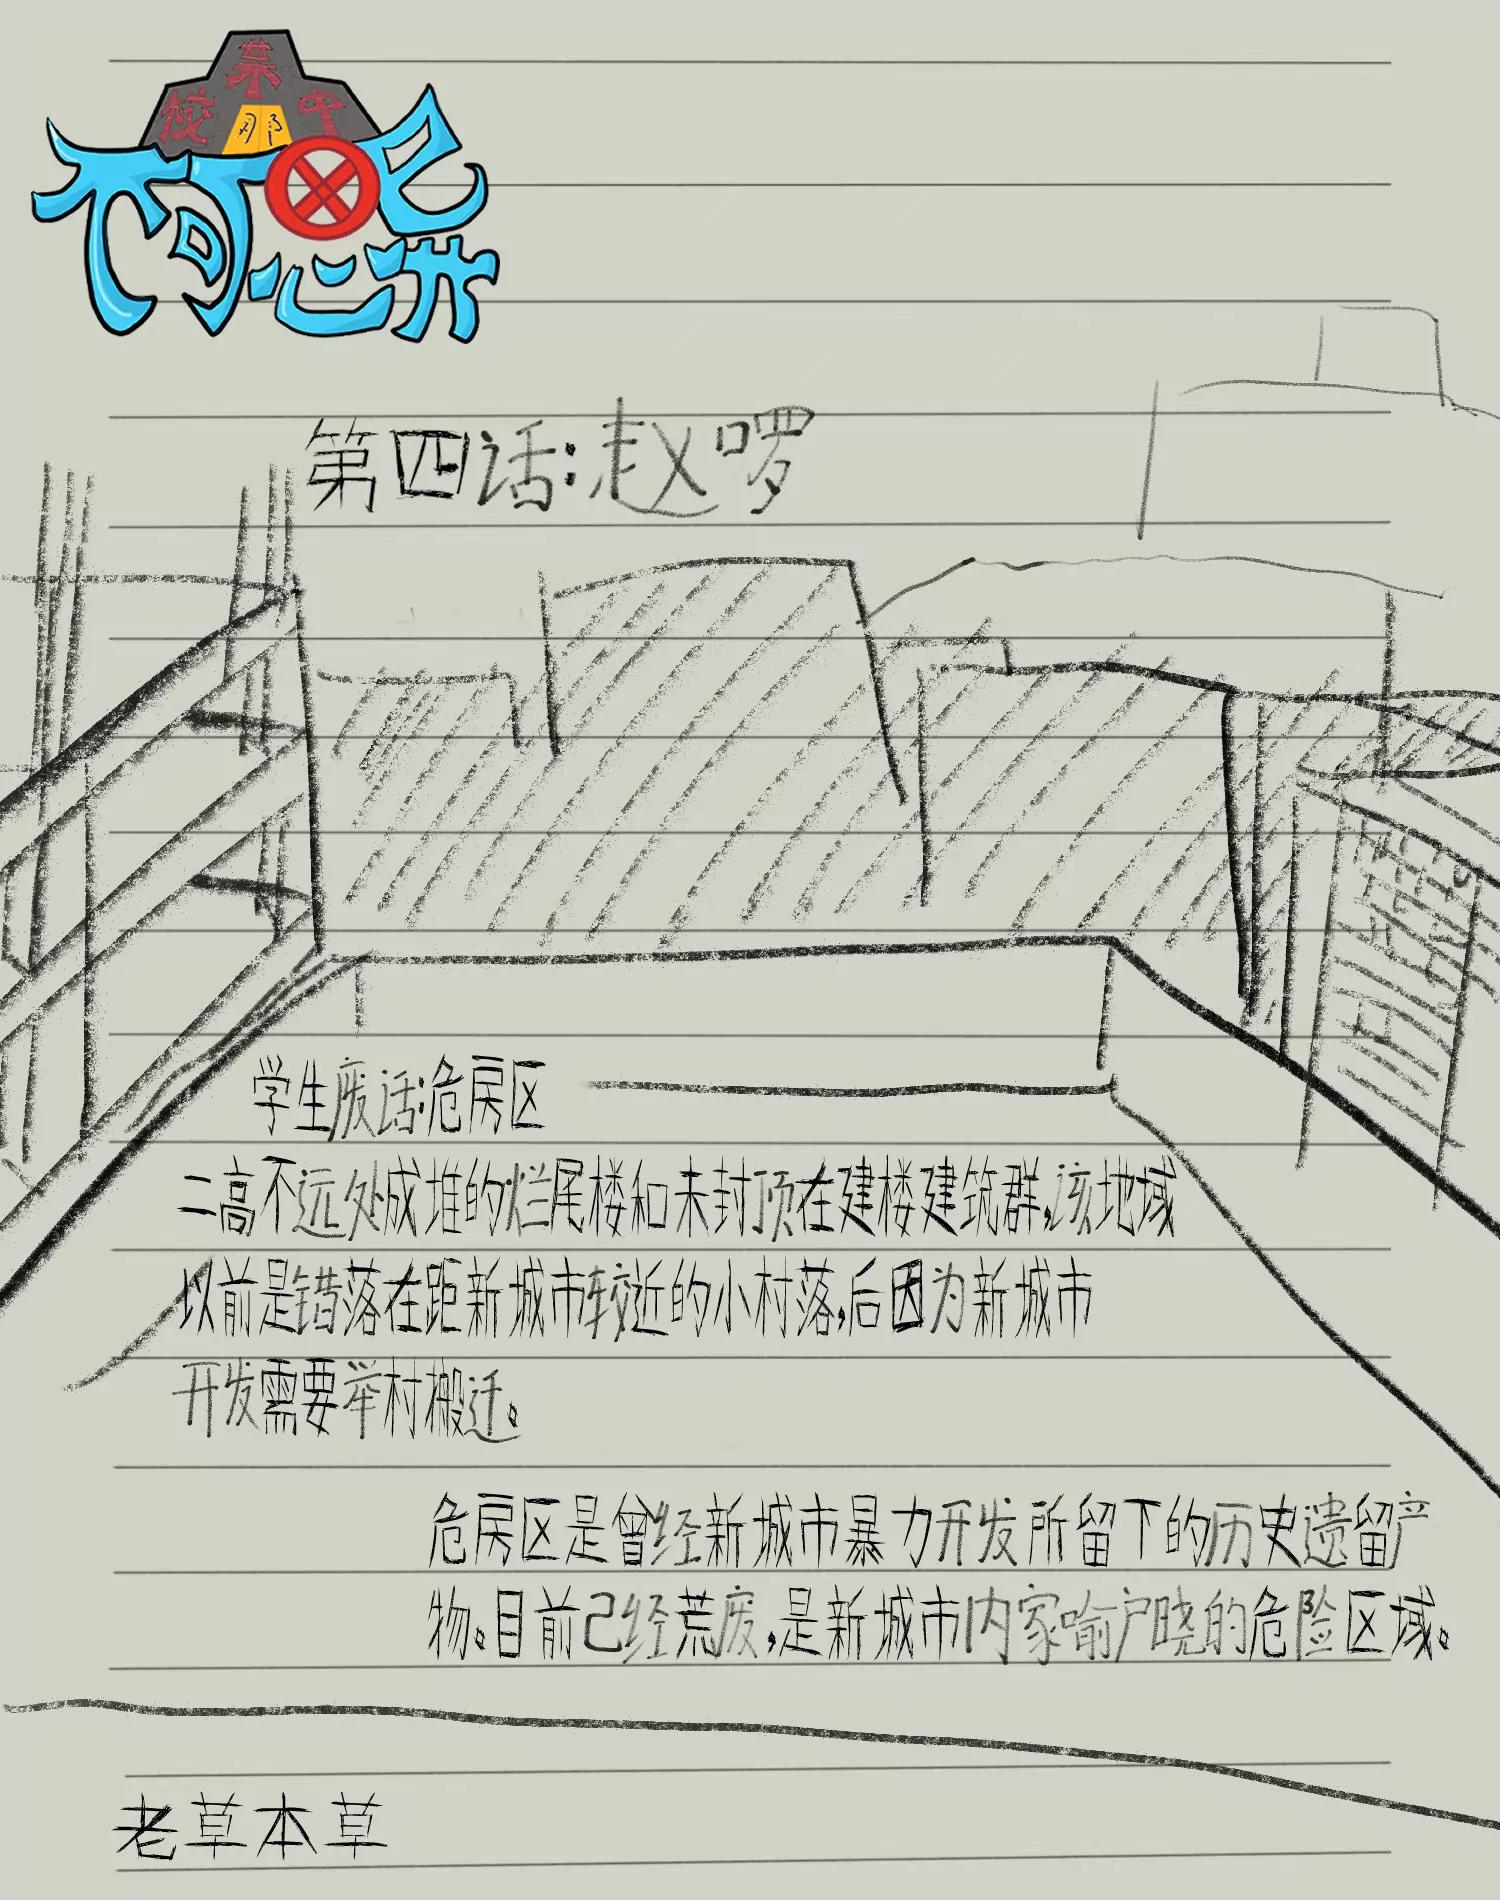 某
校 中
那
不可思异
第四话:赵啰
学生废话:危房区
二高不远处成堆的烂尾楼和未封顶在建楼建筑群,该地域
以前是错落在距新城市较近的小村落,后因为新城市
开发需要举村搬迁。
危房区是曾经新城市暴力开发所留下的历史遗留产
物。目前已经荒废,是新城市内家喻户晓的危险区域。
老草本草